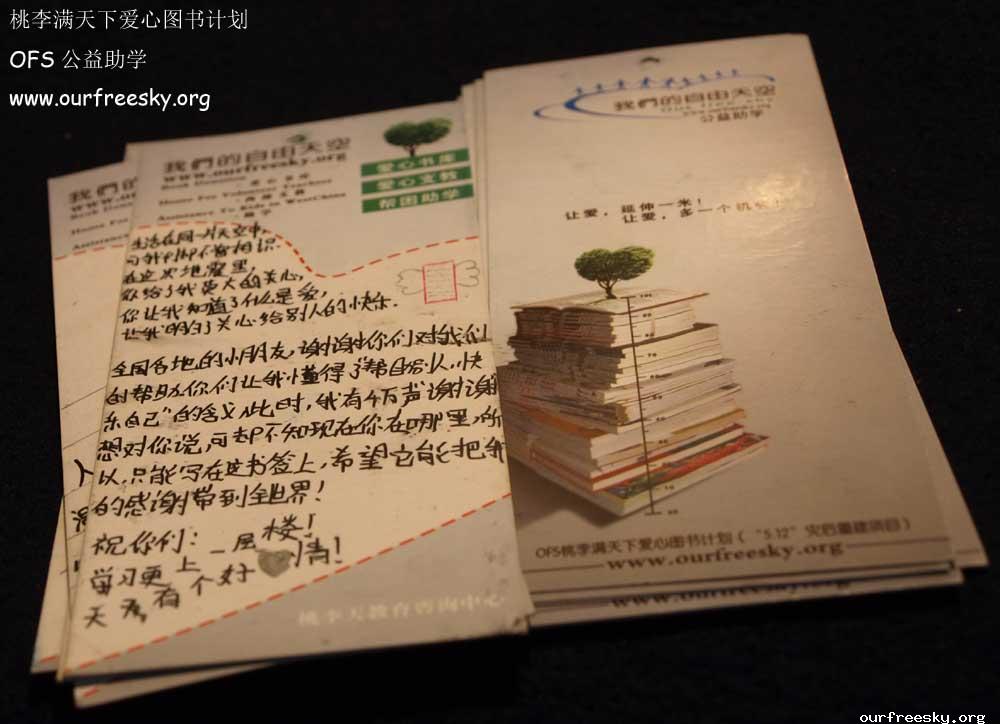 桃李满天下爱心图书计划
OFS 公益助学
www.ourfreesky.org
我們的自由天空
www.ourfreesky.org
Book Donation
Home For Volunteer Teachers
Assistance To Kids in WestChina
助学
爱心书库
爱心支教
帮困助学
生活在同一片天空中,
可我们却不曾相识.
在这次地震里,
你给了我莫大的关心,
你让我知道了什么是爱,
让我明白了关心给别人的快乐.
全国各地的小朋友,谢谢你们对我们
的帮助你们让我懂得了“帮助别人,快
乐自己”的含义,此时,我有千万声谢谢
想对你说,可却不知现在你在哪里,所
以,只能写在这书签上,希望它能把我
的感谢带到全世界!
祝你们:
学习更上一层楼!
天天有个好心情!
桃李天教育咨询中心
我們的自由天空
公益助学
让爱,延伸一米!
让爱,多一个机会!
OFS桃李满天下爱心图书计划(“5.12”灾后重建项目)
www.ourfreesky.org
www.ourfreesky.org
ourfreesky.org